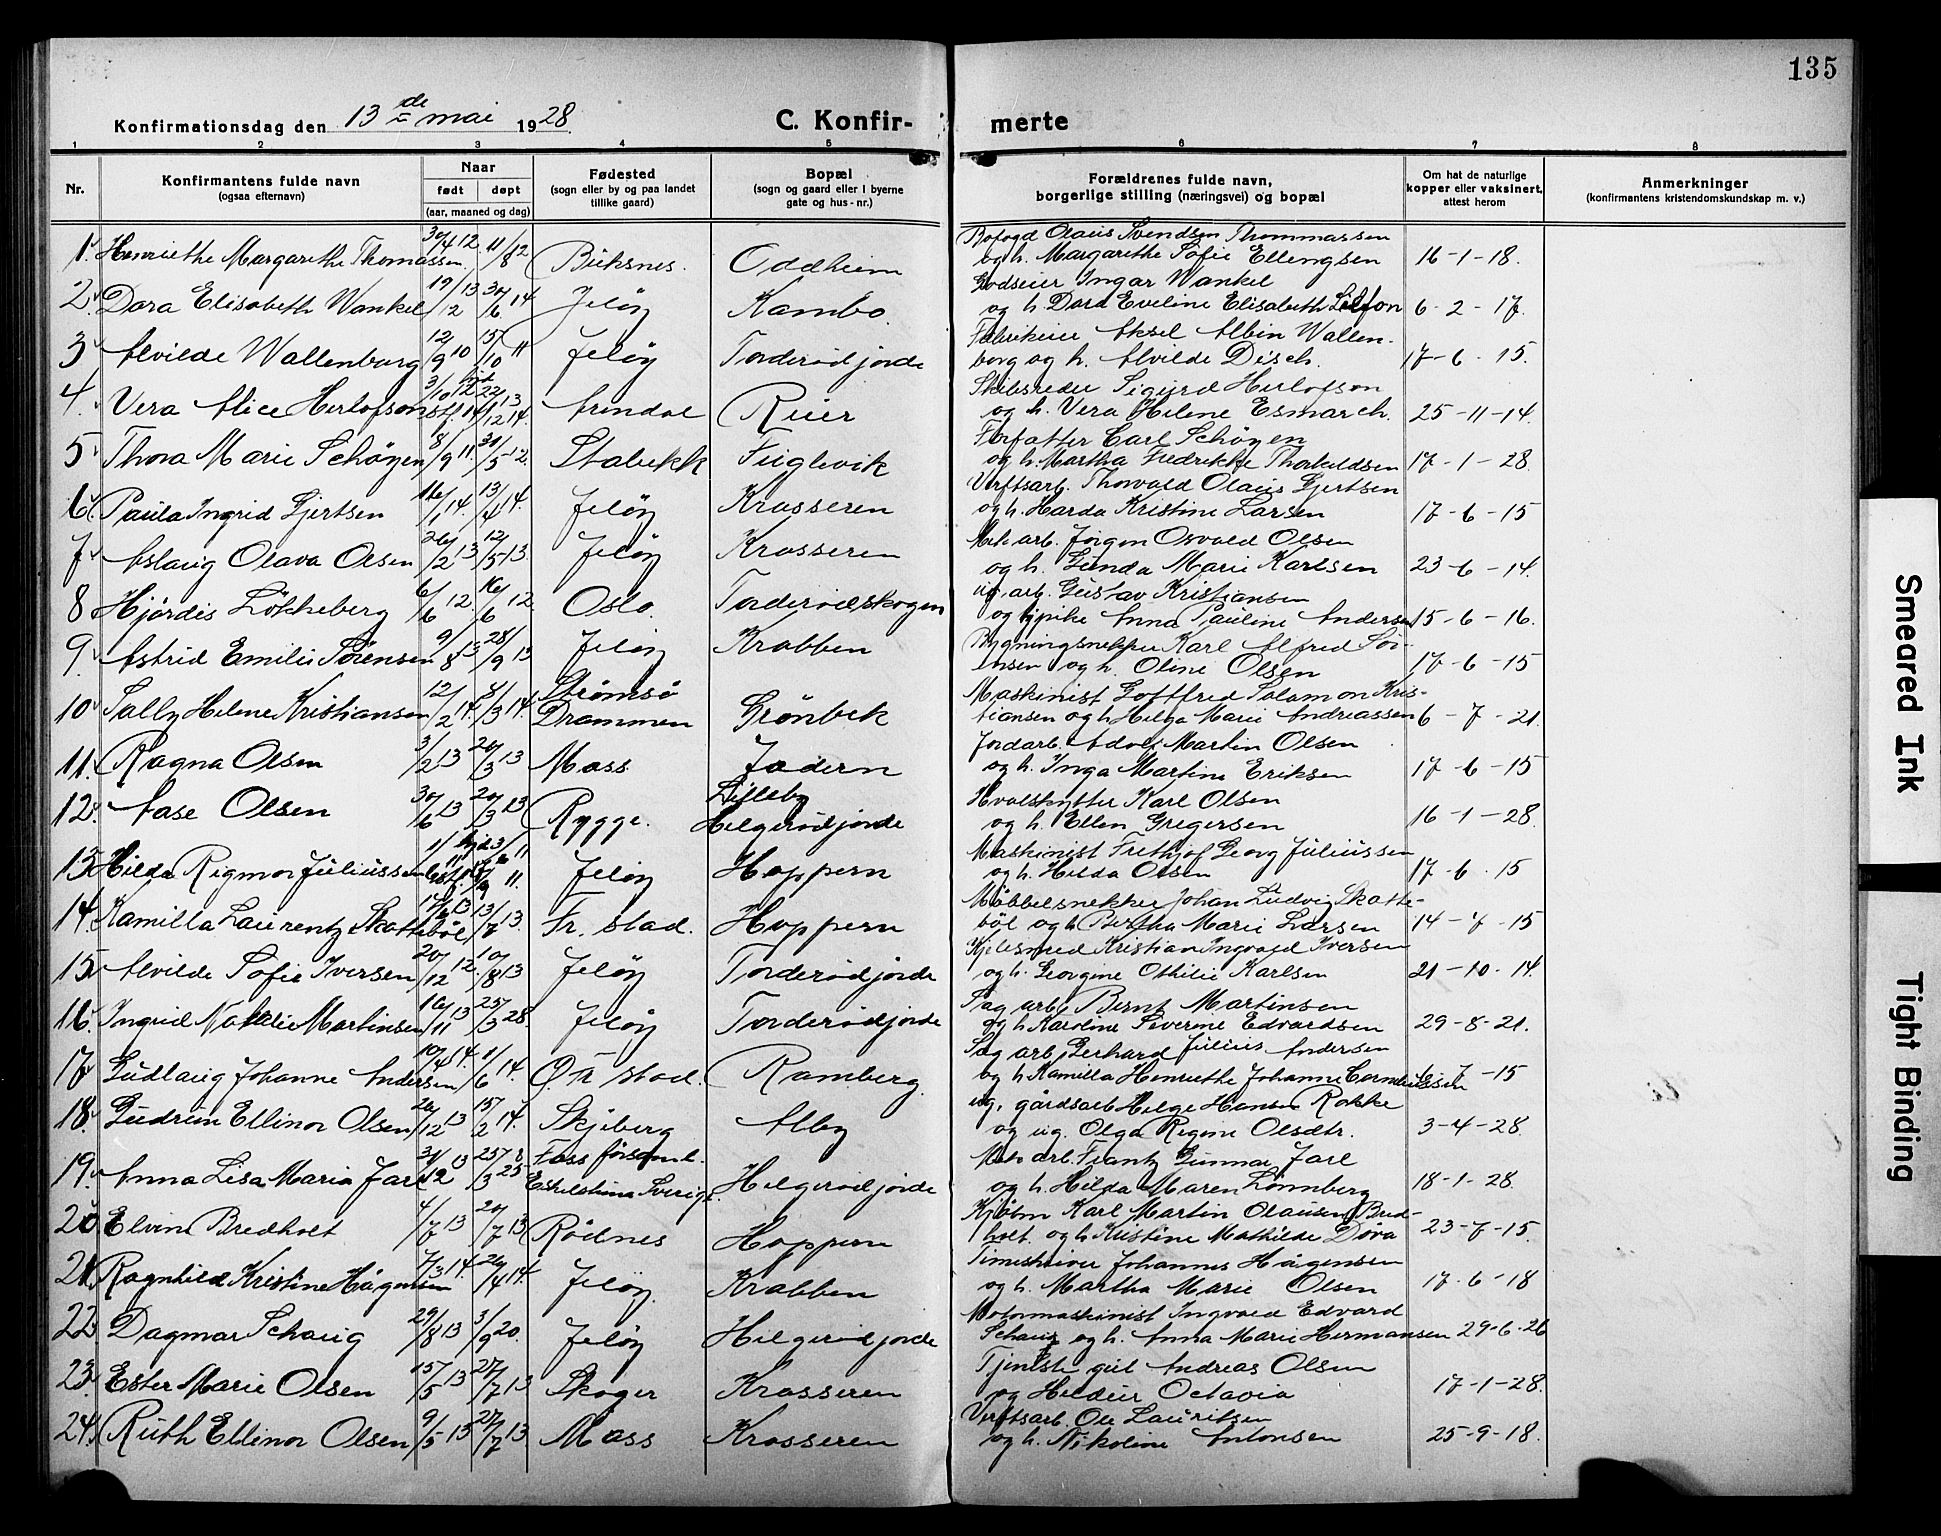 135
Konfirmationsdag den 13 de mai 1928.
C. Konfir- merte
1 2 3 4 5 6 7 8
Nr.
Konfirmantens fulde navn
(ogsaa efternavn)
Naar
født døpt
(aar, maaned og dag)
Fødested
(sogn eller by og paa landet
tillike gaard)
Bopæl
(sogn og gaard eller i byerne
gate og hus-nr.)
Forældrenes fulde navn,
borgerlige stilling (næringsvei) og bopæl
Om hat de naturlige
kopper eller vaksinert,
attest herom
Anmerkninger
(konfirmantens kristendomskundskap m. v.)
Olaus Svendsen Thommassen
1. Henriethe Margarethe Thomassen 30/4 12 11/8 12 Buksnes. Oddheim og h. Margarethe Sofie Ellengsen 16-1-18.
Godseier Ingar Wankel
2. Dara Elisabeth Wankel 19/12 13 30/6 14 Jeløy Kambo og h. Dara Eveline Elisabeth 6-2-17.
Fabrikeier Aksel Albin Wallen-
3 Alvilde Wallenborg 12/9 10 15/10 11 Jeløy Torderødjorde borg og h. Alvilde Disch. 17-6-15.
Skibsreder Sigurd Herlofson
4. Vera Alice Herlofson 3/10 12 Arendal Reier og h. Vera Helene Esmarch. 25-11-14.
Forfatter Carl Schøyen
5 Thora Marie Schøyen 8/9 11. 30/5 12. Stabekk Fuglevik og h. Martha Fredrikke Thorkildsen 17-1-28.
Verftsarb. Thorvald Olaus Gjertsen
6. Paula Ingrid Gjertsen 16/1 14. 13/4 14. Jeløy Krosseren og h. Harda Kristine Larsen 17-6-15
Mek arb. Jørgen Osvald Olsen
7 Aslaug Olava Olsen 26/2 13 12/5 13. Jeløy Krosseren og h. Gunda Marie Karlsen 23-6-14.
ug. arb. Gustav Kristiansen
8 Hjørdis Løkkeberg 6/6 12. 16/6 12. Oslo. Torderødskogen og pike Anna Pauline Andersen 15-6-16.
Bygningsnekker Karl Alfred Sør-
9. Astrid Emilie Sørensen 9/8 13 28/9 13 Jeløy Krabben ensen og h. Oline Olsen 17-6-15
Maskinist Gottfred Salamon Kris-
10 Sally Helene Kristiansen 12/2 14. 8/3 14. Strømsø Drammen Grønbek tiansen og h Helga Marie Andreassen 6-7-21.
Jordarb. Adolf Martin Olsen
11. Ragna Olsen 3/2 13 20/3 13 Moss Jodern og h. Inga Martine Eriksen 17-6-15
Hvalskytter Karl Olsen
12. Aase Olsen 30/6 13 20/3 13 Rygge. Lilleby Helgerødjorde og h. Ellen Gregersen 16-1-28.
Maskinist Frithjof Georg Juliussen
13. Hilda Rigmor Juliussen Jeløy Hoppern og h. Hilda Olsen 17-6-15
Møbbelsnekker Johan Ludvig Skatte-
14. Kamilla Laurentz Skattebøl 13/7 13. Fr. stad. Hoppern bøl og h Bertha Marie Larsen 14-7-15
Kjelesmed Kristian Ingvald Iversen
15 Alvilde Sofie Iversen 20/12 12. 10/8 13 Jeløy Torderødjorde og h. Georgine Othilie Karlsen 21-10-14.
Sag arb Bernt Martinsen
16. Ingrid Natalie Martinsen 16/11 13 25/3 28. Jeløy Torderødjorde og h Karoline Severine Edvardsen 29-8-21.
Sag arb. Gerhard Julius Andersen
17. Gudlaug Johanne Andersen 10/4 14. 1/6 14. Fr. stad. Ramberg. og h Kamilla Henriethe Johanne Corneliussen 7-15
ug. gårdsarb Helge Hansen Rokke
18. Gudrun Ellinor Olsen 26/12 13 15/2 14. Skjeberg Alby og ug. Olga Regine Olsdtr. 3-4-28.
arb. Frantz Gunnar Jarl
19. Anna Lisa Maria Jarl 31/12 13 25/3 25 Foss førsaml. Eskilstuna Sverige. Helgerødjorde og h. Hilda Maren Lønnberg 18-1-28.
Karl Martin Olausen Bred-
20. Elvin Bredholt 4/7 13 20/7 13 Rødnes Hoppern holt og h Kristine Mathilde Døra 23-7-15.
Johannes Hågensen
21. Ragnhild Kristine Hågensen 7/3 14. 26/4 14. Jeløy. Krabben og h. Martha Marie Olsen 17-6-18
Motormaskinist Ingvald Edvard
22. Dagmar Schaug 29/8 13 3/9 20. Jeløy Helgerødjorde Schaug og h. Anna Marie Hermansen 29-6-26
Andreas Olsen
23. Ester Marie Olsen 15/5 13 27/7 13 Skoger Krosseren og Octavia 17-1-28.
Verftsarb. Ole Lauritsen
24. Ruth Ellinor Olsen 9/5 13 27/7 13 Moss Krosseren og h. Nikoline Antonsen 25-9-18.
Smeared Ink
Tight Binding